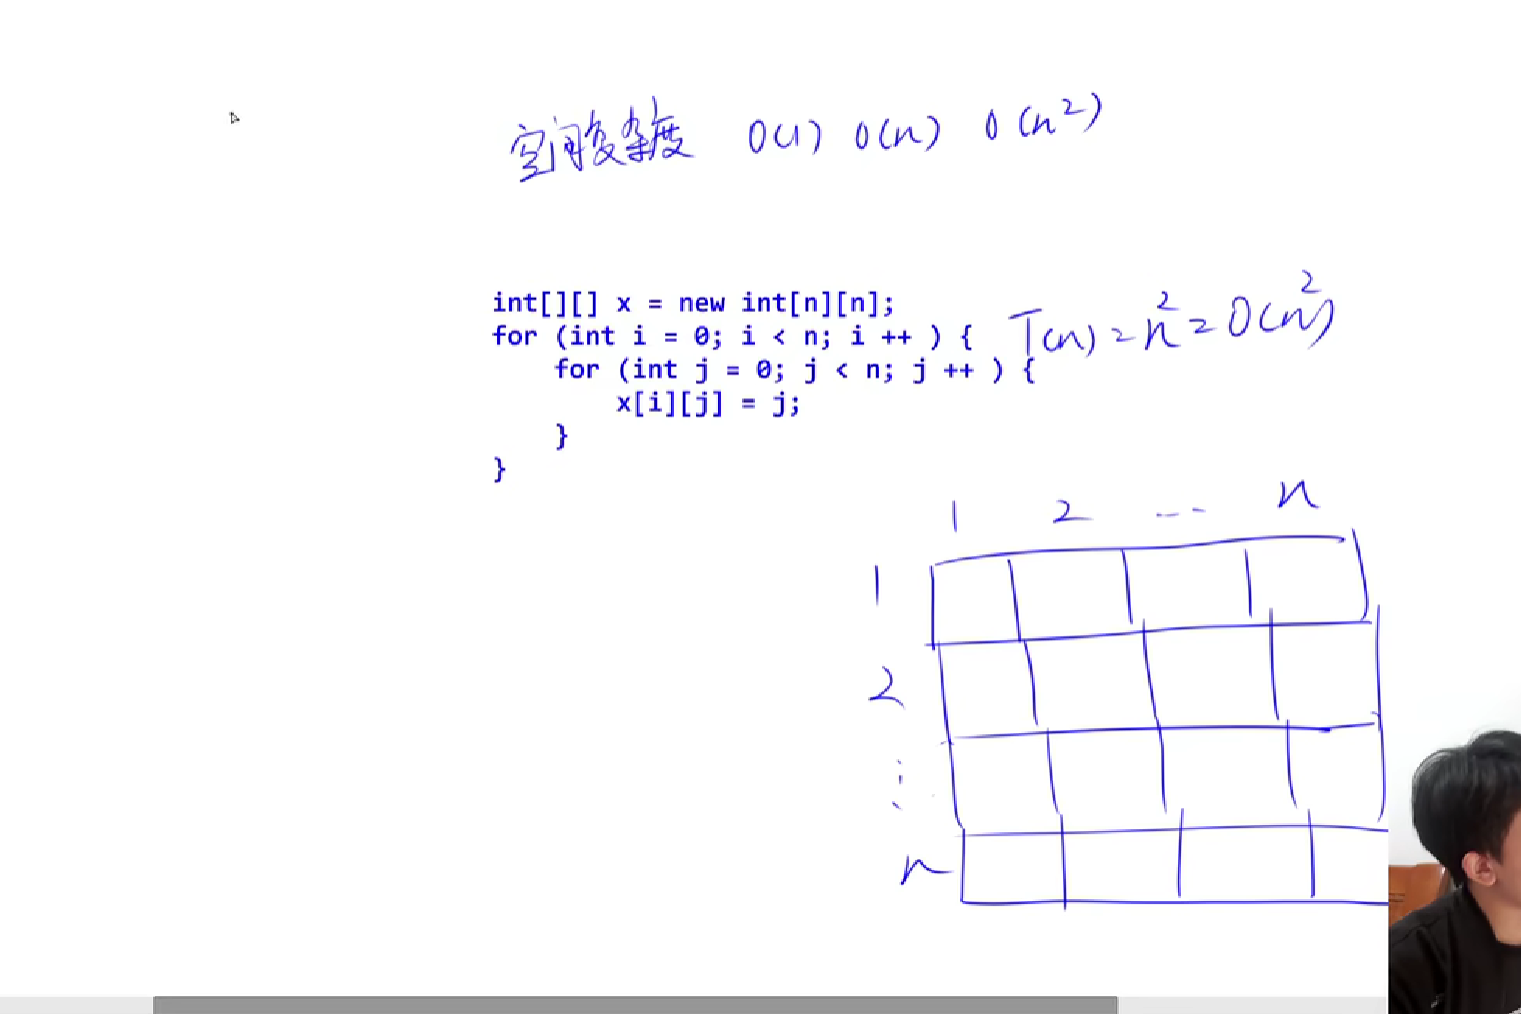 空间复杂度 O(1) O(n) O(n²)
int[][] x = new int[n][n];
for (int i = 0; i < n; i ++ ) { T(n) = n² = O(n²)
for (int j = 0; j < n; j ++ ) {
x[i][j] = j;
}
}
1 2 ... n
1
2
⋮
n